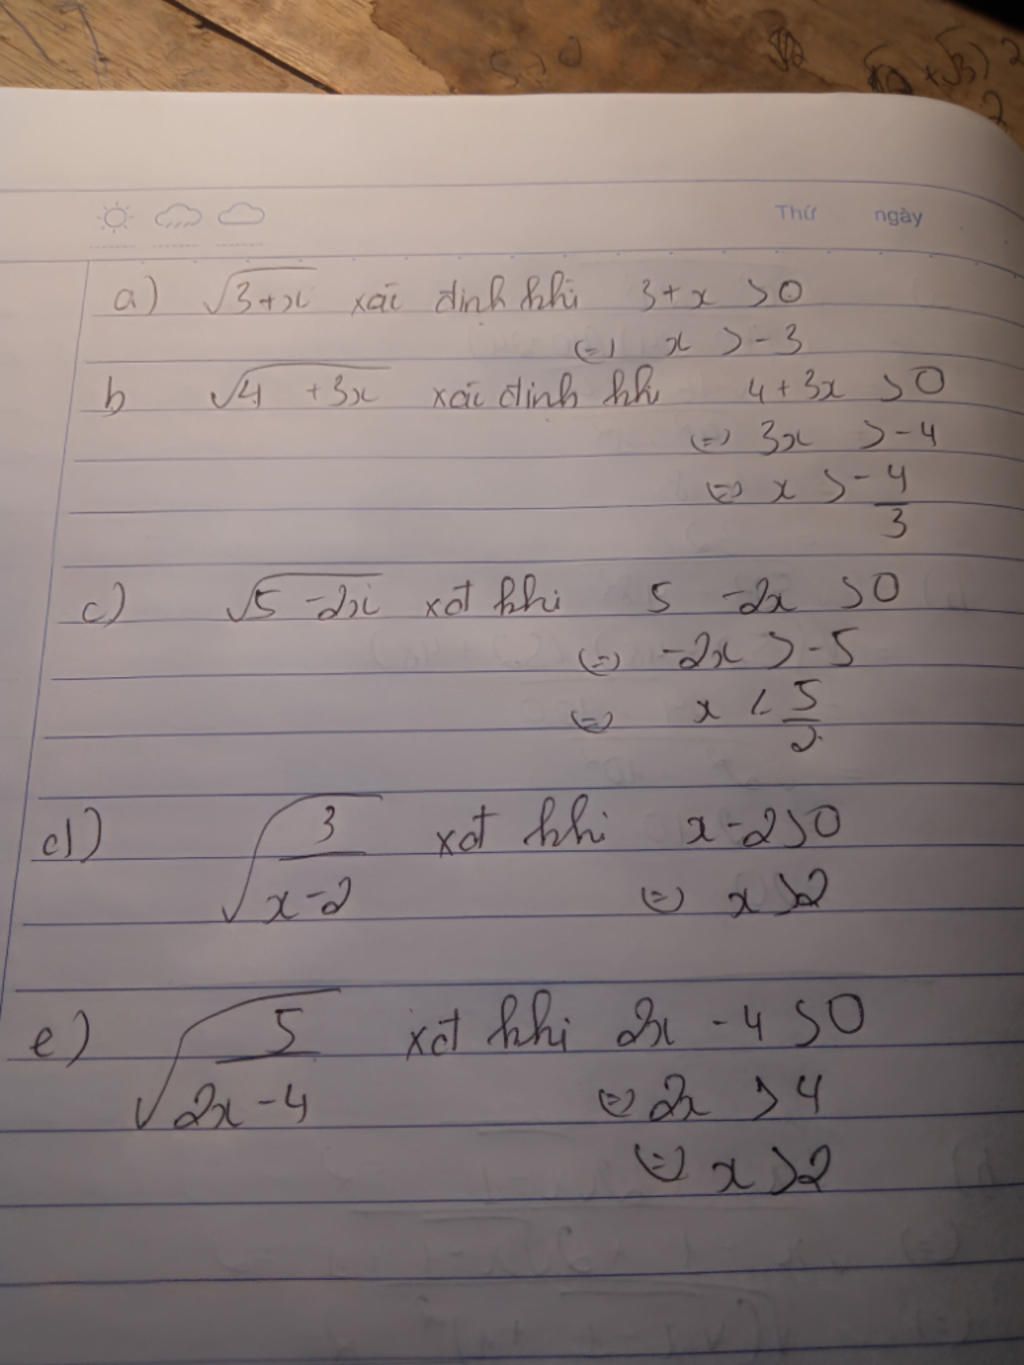 Thứ ngày
a) √3+x xác định khi 3+x >0
(=) x >-3
b √4 +3x xác định khi 4+3x >0
(=) 3x >-4
(=) x >-4/3
c) √5-2x xđ khi 5 -2x >0
(=) -2x >-5
(=) x < 5/2
d) √3/x-2 xđ khi x-2>0
(=) x >2
e) √5/2x-4 xđ khi 2x -4 >0
(=) 2x >4
(=) x >2